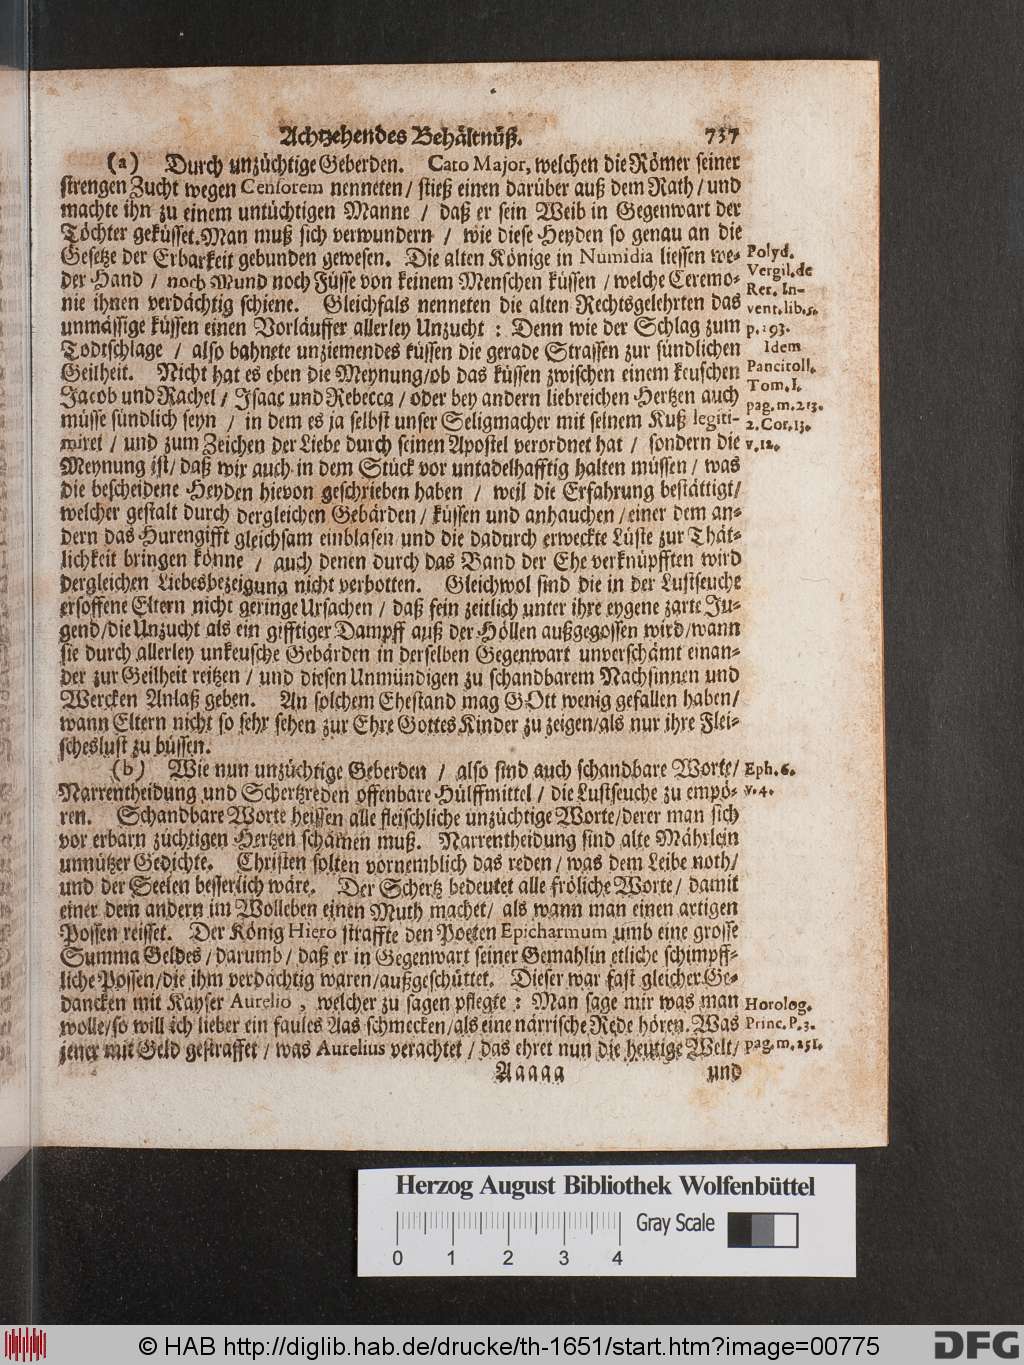 Achtzehendes Behältnüß. 737
(a) Durch unzüchtige Geberden. Cato Major, welchen die Römer seiner
strengen Zucht wegen Censorem nenneten / stieß einen darüber auß dem Rath / und
machte ihn zu einem untüchtigen Manne / daß er sein Weib in Gegenwart der
Töchter geküsset. Man muß sich verwundern / wie diese Heyden so genau an die
Gesetze der Erbarkeit gebunden gewesen. Die alten Könige in Numidia liessen we-
der Hand / noch Mund noch Füsse von keinem Menschen küssen / welche Ceremo-
nie ihnen verdächtig schiene. Gleichfals nenneten die alten Rechtsgelehrten das
unmässige küssen einen Vorläuffer allerley Unzucht : Denn wie der Schlag zum
Todtschlage / also bahnete unziemendes küssen die gerade Strassen zur sündlichen
Geilheit. Nicht hat es eben die Meynung / ob das küssen zwischen einem keuschen
Jacob und Rachel / Isaac und Rebecca / oder bey andern liebreichen Hertzen auch
müsse sündlich seyn / in dem es ja selbst unser Seligmacher mit seinem Kuß legiti-
miret / und zum Zeichen der Liebe durch seinen Apostel verordnet hat / sondern die
Meynung ist / daß wir auch in dem Stück vor untadelhafftig halten müssen / was
die bescheidene Heyden hievon geschrieben haben / weil die Erfahrung bestättigt /
welcher gestalt durch dergleichen Gebärden / küssen und anhauchen / einer dem an-
dern das Hurengifft gleichsam einblasen und die dadurch erweckte Lüste zur Thät-
lichkeit bringen könne / auch denen durch das Band der Ehe verknüpfften wird
dergleichen Liebesbezeigung nicht verbotten. Gleichwol sind die in der Lustseuche
ersoffene Eltern nicht geringe Ursachen / daß fein zeitlich unter ihre eygene zarte Ju-
gend / die Unzucht als ein gifftiger Dampff auß der Höllen außgegossen wird / wann
sie durch allerley unkeusche Gebärden in derselben Gegenwart unverschämt einan-
der zur Geilheit reitzen / und diesen Unmündigen zu schandbarem Nachsinnen und
Wercken Anlaß geben. An solchem Ehestand mag GOtt wenig gefallen haben /
wann Eltern nicht so sehr sehen zur Ehre Gottes Kinder zu zeigen / als nur ihre Flei-
scheslust zu büssen.
(b) Wie nun unzüchtige Geberden / also sind auch schandbare Worte /
Narrentheidung und Schertzreden offenbare Hülffmittel / die Lustseuche zu empö-
ren. Schandbare Worte heissen alle fleischliche unzüchtige Worte / derer man sich
vor erbarn züchtigen Hertzen schämen muß. Narrentheidung sind alte Mährlein
unnützer Gedichte. Christen solten vornemblich das reden / was dem Leibe noth /
und der Seelen besserlich wäre. Der Schertz bedeutet alle fröliche Worte / damit
einer dem andern im Wolleben einen Muth machet / als wann man einen artigen
Possen reisset. Der König Hiero straffte den Poeten Epicharmum umb eine grosse
Summa Geldes / darumb / daß er in Gegenwart seiner Gemahlin etliche schimpff-
liche Possen / die ihm verdächtig waren / außgeschüttet. Dieser war fast gleicher Ge-
dancken mit Kayser Aurelio , welcher zu sagen pflegte : Man sage mir was man
wolle / so will ich lieber ein faules Aas schmecken / als eine närrische Rede hören. Was
jener mit Geld gestraffet / was Aurelius verachtet / das ehret nun die heutige Welt /
Aaaaa und
Polyd.
Vergil. de
Rer. In-
vent. lib. 5.
p. 293.
Idem
Panciroll.
Tom. I.
pag. m. 213.
2. Cor. 13.
v. 12.
Eph. 6.
v. 4.
Horolog.
Princ. P. 3.
pag. m. 251.
Herzog August Bibliothek Wolfenbüttel
Gray Scale
0 1 2 3 4
© HAB http://diglib.hab.de/drucke/th-1651/start.htm?image=00775
DFG